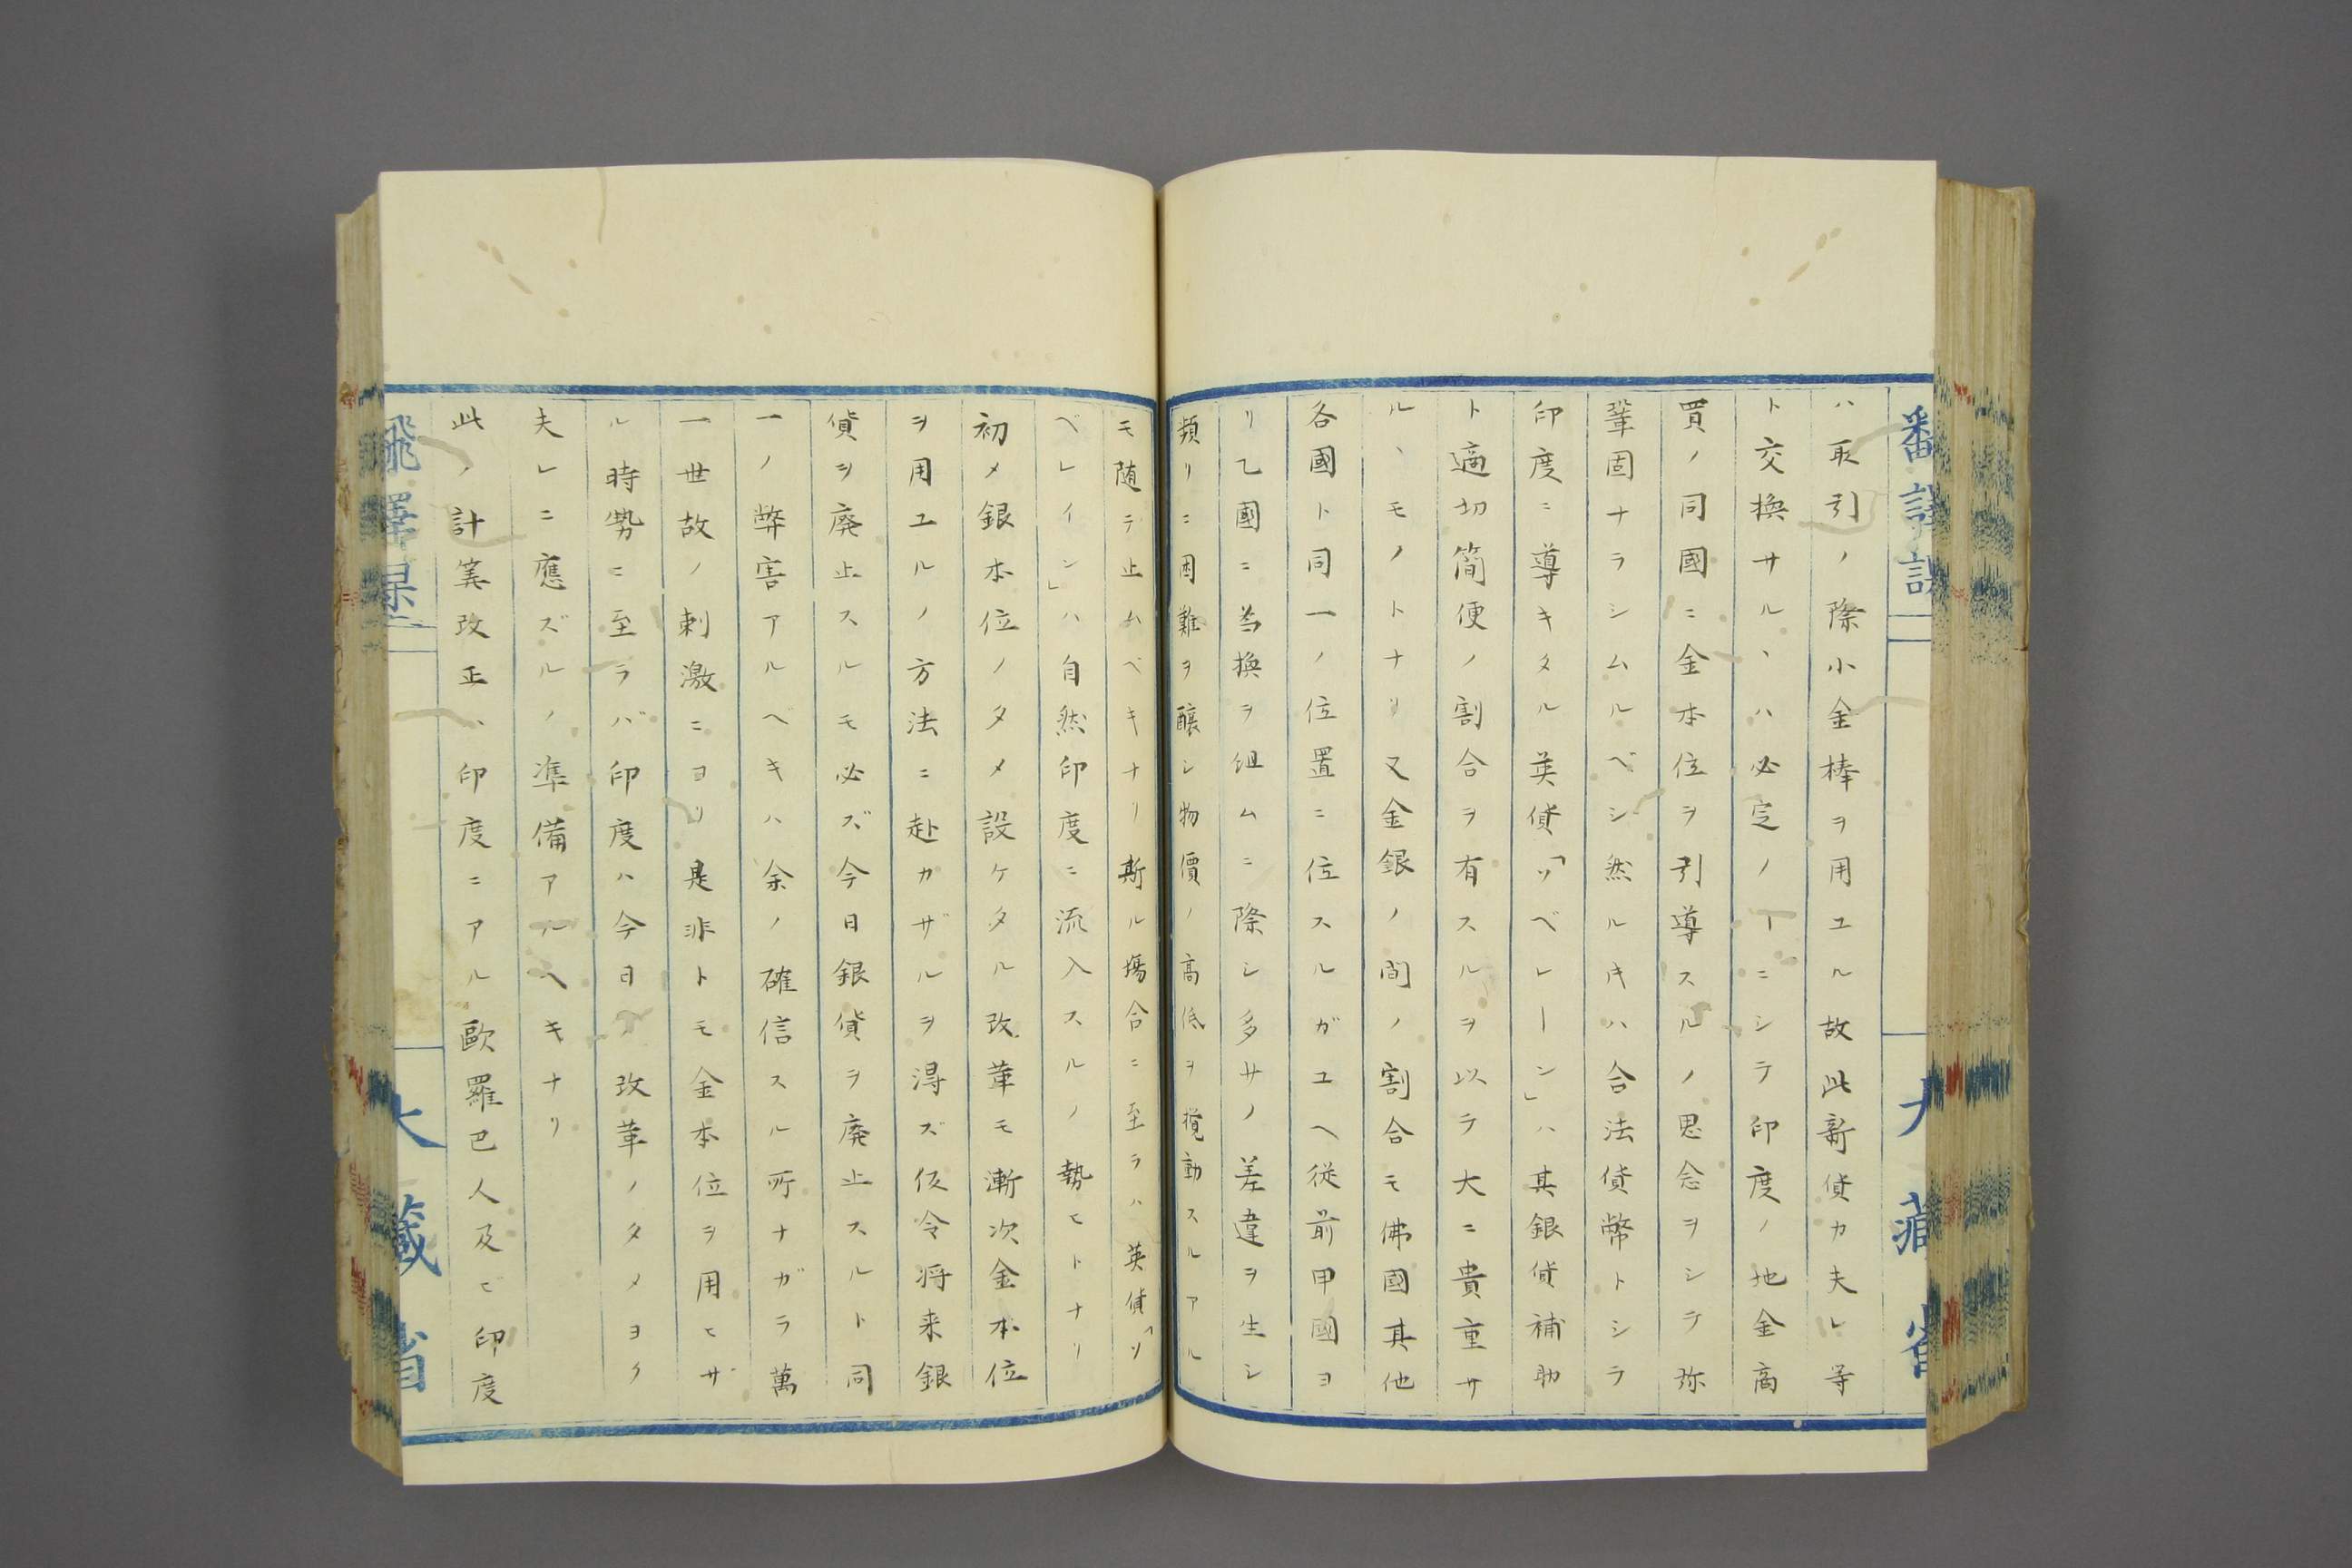 ハ取引ノ際小金棒ヲ用ユル故此新貨カ夫レ等
ト交換サルヽハ必定ノヿニシテ印度ノ地金商
買ノ同國ニ金本位ヲ引導スルノ思念ヲシテ弥
鞏固ナラシムルベシ然ルキハ合法貨幣トシテ
印度ニ導キタル英貨「ソベレーン」ハ其銀貨補助
ト適切簡便ノ割合ヲ有スルヲ以テ大ニ貴重サ
ルヽモノトナリ又金銀ノ間ノ割合モ佛國其他
各國ト同一ノ位置ニ位スルガユヘ従前甲國ヨ
リ乙國ニ為換ヲ組ムニ際シ多少ノ差違ヲ生シ
頻リニ困難ヲ醸シ物價ノ高低ヲ撹動スルアル
モ随テ止ムベキナリ斯ル場合ニ至ラハ英貨「ソ
ベレイン」ハ自然印度ニ流入スルノ勢ヒトナリ
初メ銀本位ノタメ設ケタル改革モ漸次金本位
ヲ用ユルノ方法ニ赴カザルヲ得ズ仮令将来銀
貨ヲ廃止スルモ必ズ今日銀貨ヲ廃止スルト同
一ノ弊害アルベキハ余ノ確信スル所ナガラ萬
一世故ノ刺激ニヨリ是非トモ金本位ヲ用ヒザ
ル時勢ニ至ラバ印度ハ今日ノ改革ノタメヨク
夫レニ應ズルノ準備アルヘキナリ
此ノ計筭改正ハ印度ニアル歐羅巴人及ビ印度
大藏省